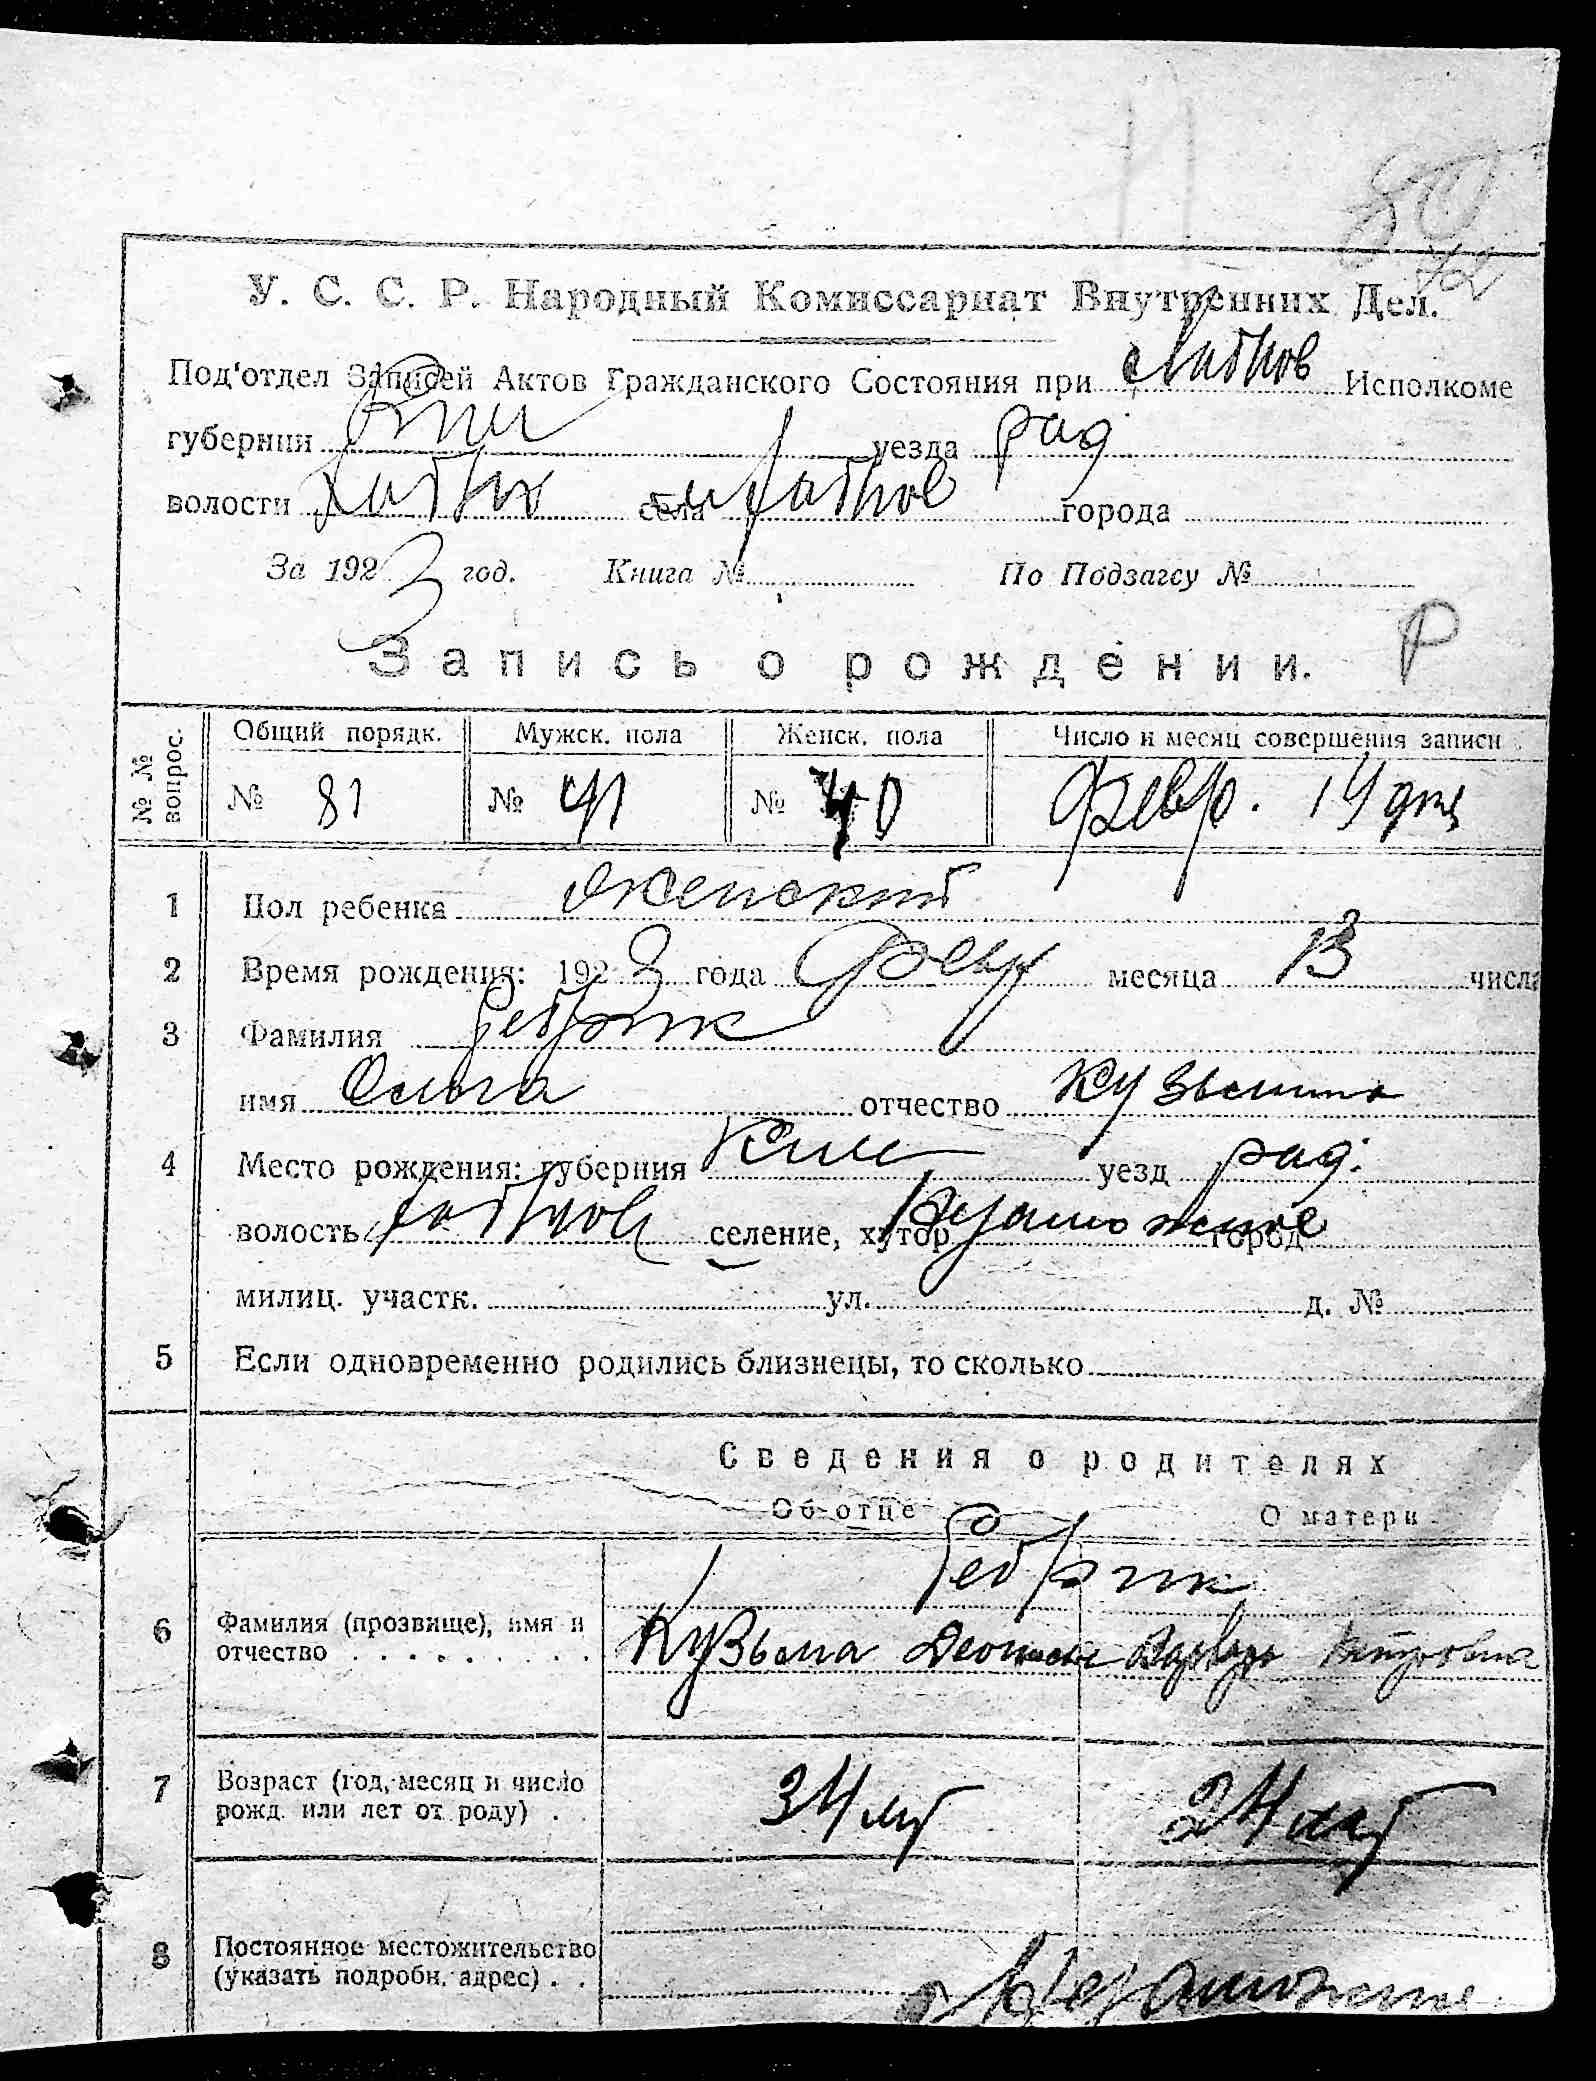 80
У. С. С. Р. Народный Комиссариат Внутренних Дел.
Под'отдел Записей Актов Гражданского Состояния при Исполкоме
губернии уезда рад
волости села города
За 1923 год. Книга № По Подзагсу №
Запись о рождении. Р
№ № вопрос. Общий порядк. Мужск. пола Женск. пола Число и месяц совершения записи
№ 81 № 41 № 40 Февр. 14 дня
1 Пол ребенка женский
2 Время рождения: 1923 года февр месяца 13 числа
3 Фамилия
имя Ольга отчество Кузьмина
4 Место рождения: губерния Кие уезд рад.
волость селение, хутор город
милиц. участк. ул. д. №
5 Если одновременно родились близнецы, то сколько
Сведения о родителях
Об отце О матери
6 Фамилия (прозвище), имя и
отчество Кузьма Варвара Петровна
7 Возраст (год, месяц и число
рожд. или лет от роду) 34 лет 24 лет
8 Постоянное местожительство
(указать подробн. адрес)